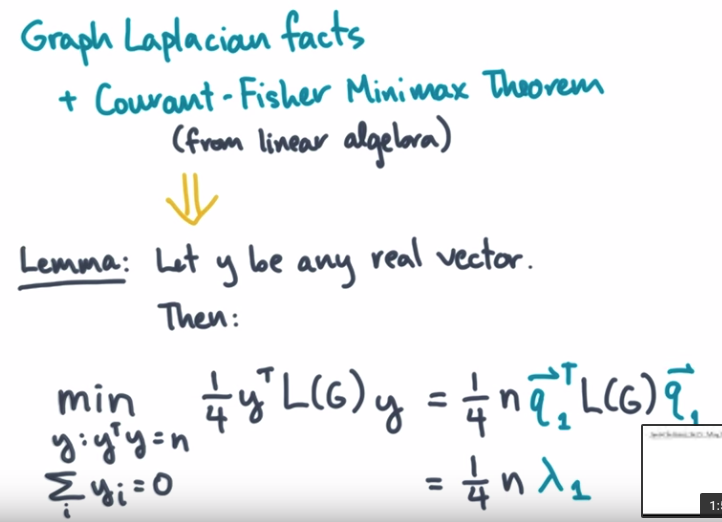 Graph Laplacian facts
+ Courant-Fisher Minimax Theorem
(from linear algebra)
⇓
Lemma: Let y be any real vector.
Then:
min 1/4 yᵀ L(G) y = 1/4 n q⃗₁ᵀ L(G) q⃗₁
y: yᵀy = n
∑ᵢ yᵢ = 0 = 1/4 n λ₁